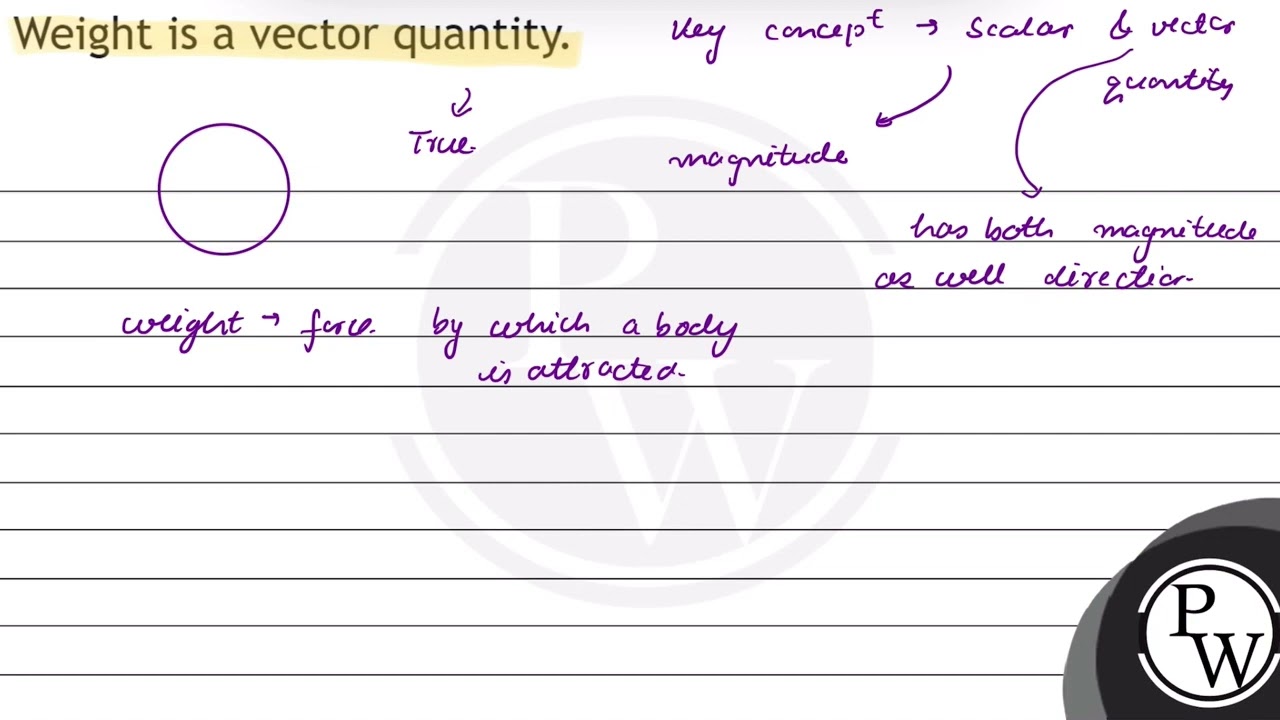 Weight is a vector quantity.
Key concept → scalar & vector
quantity
True.
magnitude
has both magnitude
as well direction.
weight → force by which a body
is attracted.
PW
PW